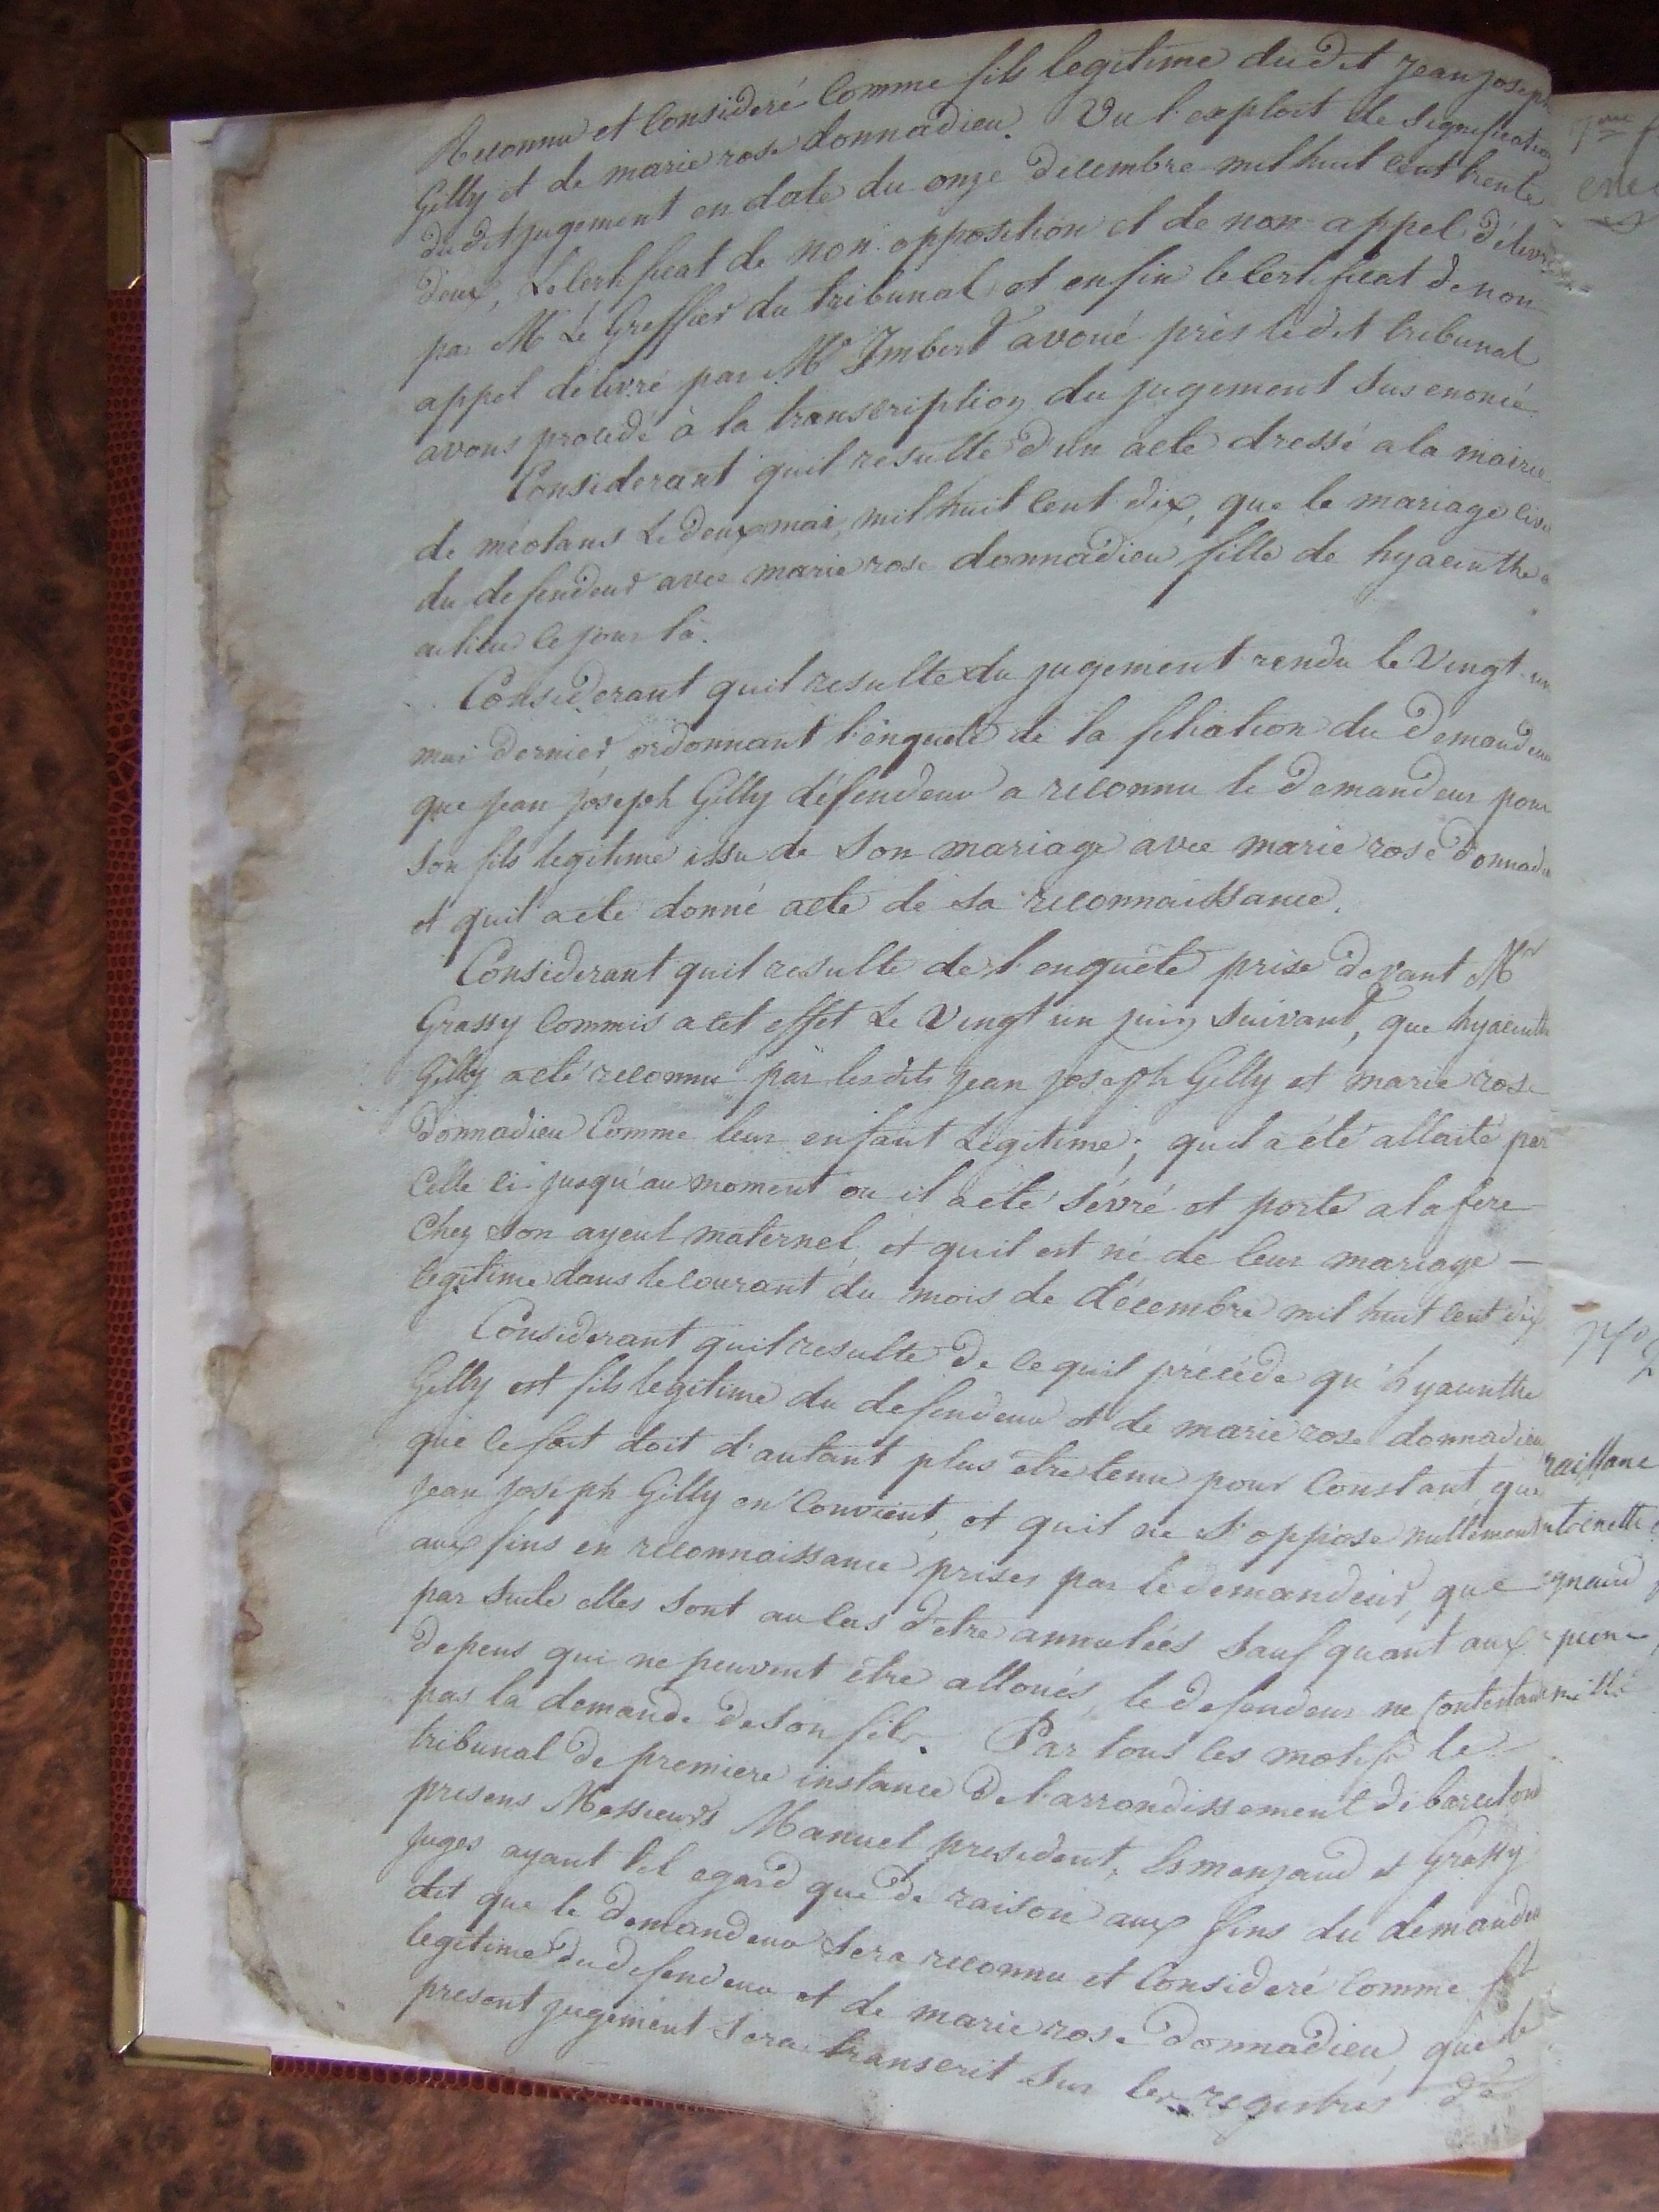 Reconnu et Consideré Comme fils legitime dudit jean joseph
Gilly et de marie rose donnadieu. Vu l'exploit de signification
dudit jugement en date du onze decembre mil huit cent trente
deux, Le certificat de non opposition et de non appel délivré
par Mr Le Greffier du tribunal et enfin le certificat de non
appel délivré par Me Imbert avoué près ledit tribunal
avons procedé à la transcription du jugement sus enoncé
Considerant quil resulte d'un acte dressé a la mairie
de méolans Le deux mai, mil huit cent dix, que le mariage civil
du defendeur avec marie rose donnadieu fille de hyacinthe a
eu lieu ce jour là.
Considerant quil resulte du jugement rendu le Vingt un
mai dernier, ordonnant l'enquete de la filiation du demandeur
que jean joseph Gilly défendeur a reconnu le demandeur pour
son fils legitime issu de son mariage avec marie rose donnadieu
et quil a été donné acte de sa reconnaissance.
Considerant quil resulte de l'enquête prise devant Mr
Grassy Commis a cet effet Le Vingt un juin suivant, que hyacinthe
Gilly a été reconnu par lesdits jean joseph Gilly et marie rose
donnadieu Comme leur enfant Légitime; quil a été allaité par
Celle ci jusqu'au moment ou il a été sévré et porté a la fere
Chez son ayeul maternel, et quil est né de leur mariage —
legitime dans le courant du mois de décembre mil huit cent dix
Considerant quil resulte de ce quil précéde qu'hyacinthe
Gilly est fils legitime du defendeur et de marie rose donnadieu
que ce fait doit d'autant plus etre tenu pour Constant, que
jean joseph Gilly en Convient, et quil ne s'oppose nullement
aux fins en reconnaissance prises par le demandeur, que
par suite elles sont au cas d'etre annulées sauf quant aux
depens qui ne peuvent être alloués, le defendeur ne Contestant
pas la demande de son fils. Par tous ces motifs le
tribunal de premiere instance de l'arrondissement de barcelon
presens Messieurs Manuel president, Esmenjaud et Grassy
juges ayant tel egard que de raison aux fins du demandeur
dit que le demandeur sera reconnu et Consideré Comme fils
legitime du defendeur et de marie rose donnadieu, que le
present jugement sera transcrit sur les registres de
7me
ene
No
naissance
antoinette